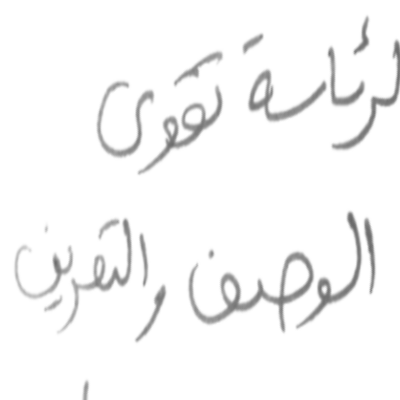 لرئاسة تقوى
الوصف والتعريف